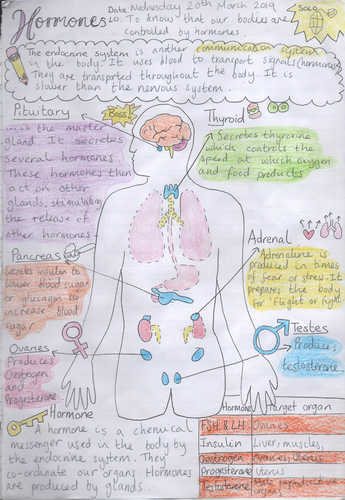 Hormones
Date: Wednesday 20th March 2019
LO: To know that our bodies are
controlled by hormones.
SOLO
The endocrine system is another communication system
in the body. It uses blood to transport signals (hormones).
They are transported throughout the body. It is
slower than the nervous system.
Pituitary
Boss!
is the master
gland. It secretes
several hormones.
These hormones then
act on other
glands, stimulating
the release of
other hormones.
Thyroid
Secretes thyroxine
which controls the
speed at which oxygen
and food products
Adrenal
Adrenaline is
produced in times of
fear or stress. It
prepares the body
for 'flight or fight'
Pancreas
Secretes insulin to
lower blood sugar
or glucagon to
increase blood
sugar
Testes
Produces
testosterone.
Ovaries
Produces
Oestrogen
and
Progesterone.
Hormone
A hormone is a chemical
messenger used in the body by
the endocrine system. They
co-ordinate our organs. Hormones
are produced by glands
Hormone Target organ
FSH & LH Ovaries
Insulin Liver, muscles,
Oestrogen Ovaries, uterus
Progesterone Uterus
Testosterone Male reproductive
organs